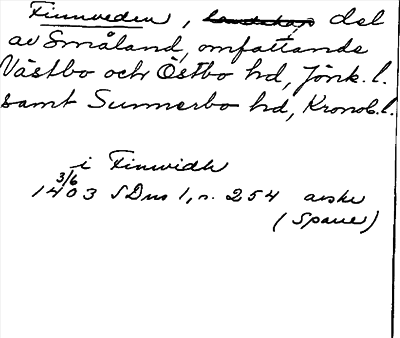 Finnveden, landskap, del
av Småland, omfattande
Västbo och Östbo hd, Jönk. l.
samt Sunnerbo hd, Kronob. l.
i Finwidh
3/6
1403 SDns 1, n. 254 avskr
(Spane)